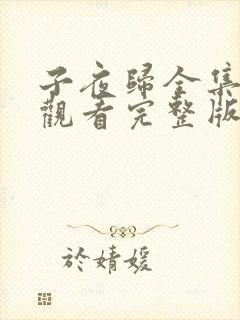 子夜歸全集
觀看完整版
於婧媛